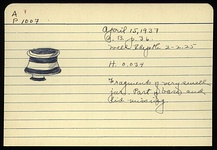 A
P 1007
April 15, 1937
p. 36.
2-2-25
H. 0.034
Fragments of very small
jar. Part of base and
missing